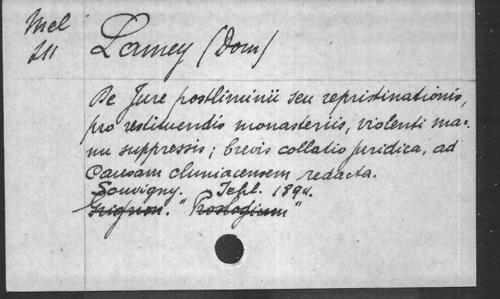 Mel
211
Lamey (Dom)
De Jure postliminii seu repristinationis,
pro restituendis monasteriis, violenti ma=
nu suppressis; brevis collatio juridica, ad
Causam cluniacensem redacta.
Souvigny. 1894.
Grignon. "Prologium"